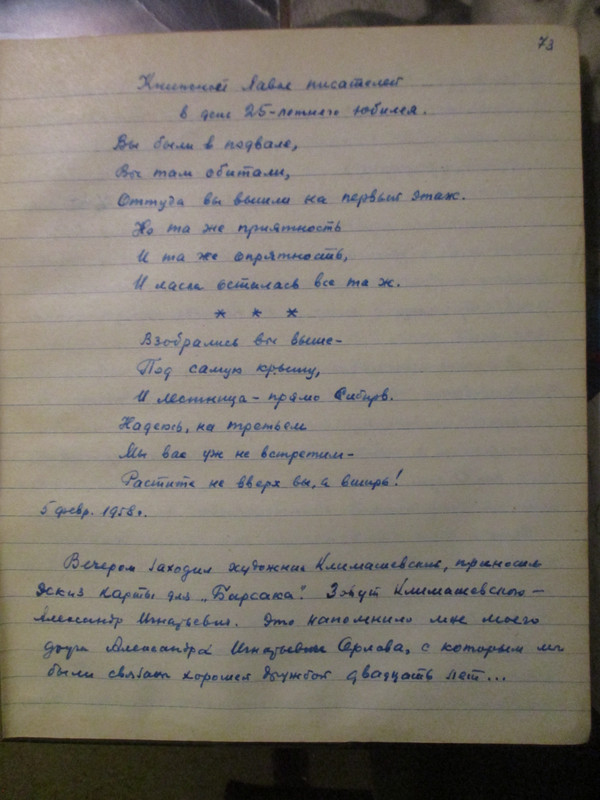 73
Книжной Лавке писателей
в день 25-летнего юбилея.
Вы были в подвале,
Вы там обитали,
Оттуда вы вышли на первый этаж.
Но та же приятность
И та же опрятность,
И ласка осталась все та ж.
* * *
Взобрались вы выше-
Под самую крышу,
И лестница - прямо Сибирь.
Надеюсь, на третьем
Мы вас уж не встретим-
Растите не вверх вы, а вширь!
5 февр. 1958 г.
Вечером заходил художник Климашевский, приносил
эскиз карты для „Барсака". Зовут Климашевского —
Александр Игнатьевич. Это напомнило мне моего
друга Александра Игнатьевича Орлова, с которым мы
были связаны хорошей дружбой двадцать лет...